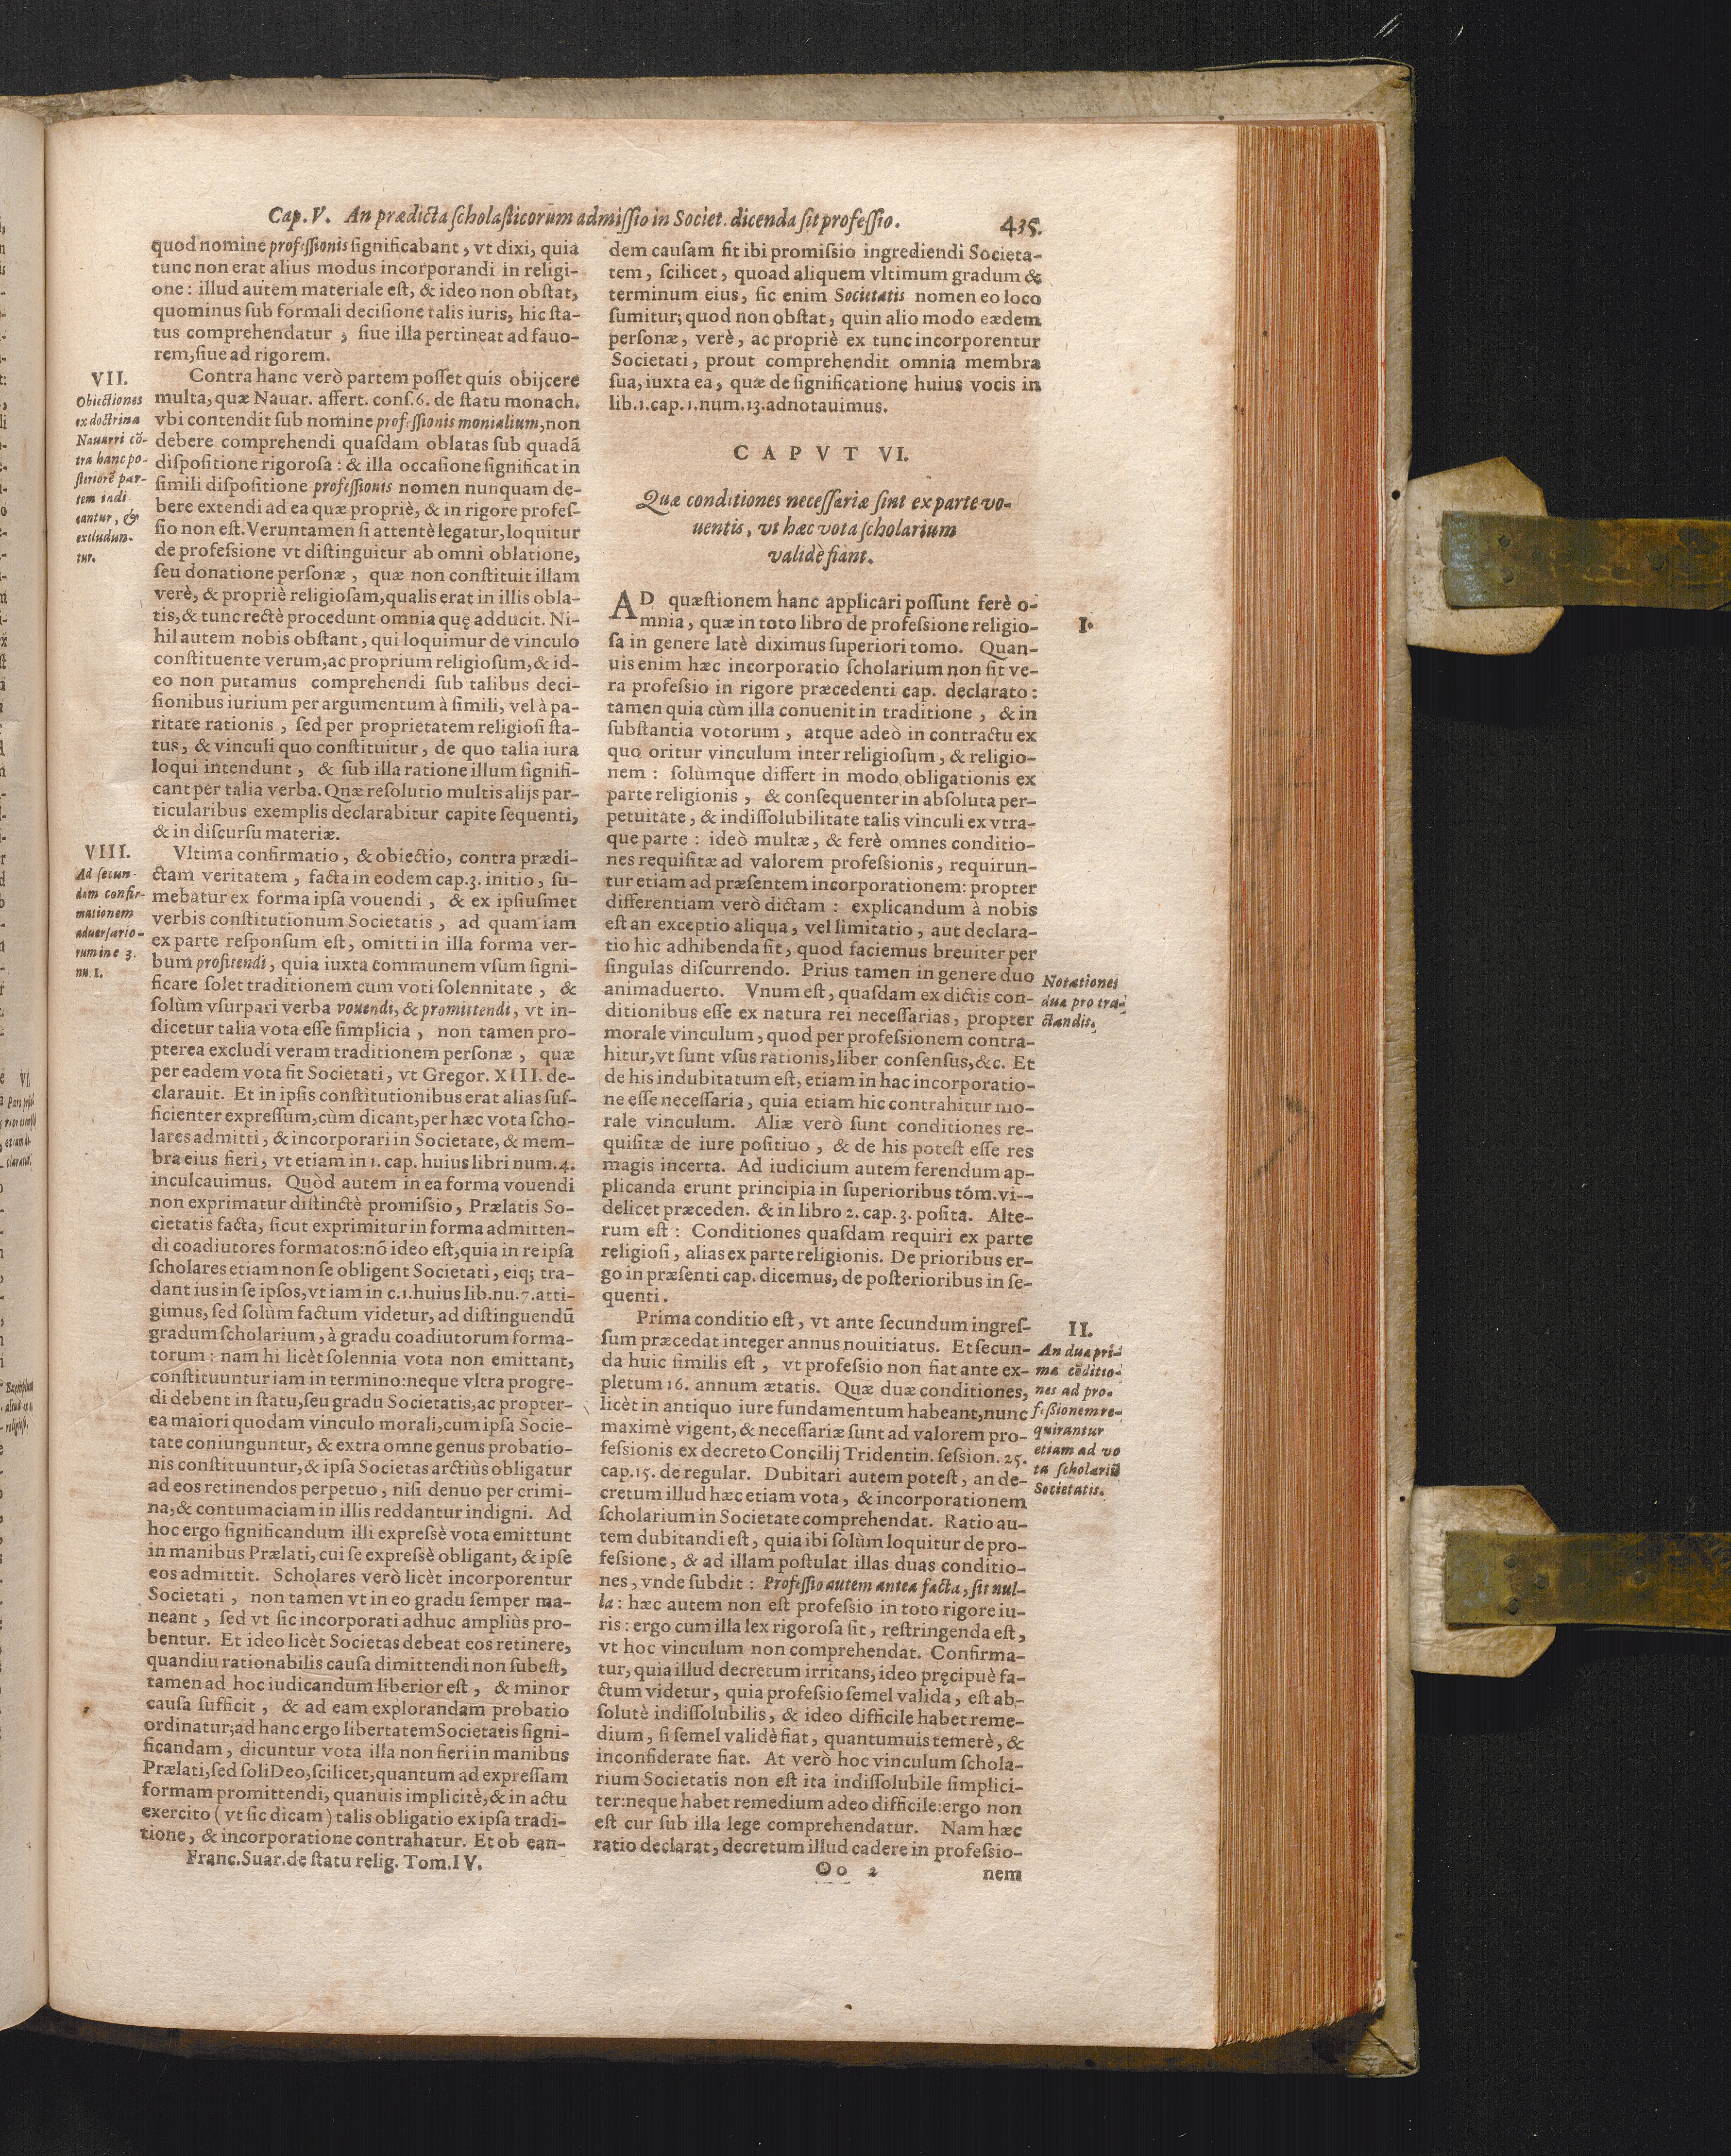 Cap. V. An prædicta scholasticorum admissio in Societ. dicenda sit professio. 435.
quod nomine professionis significabant, vt dixi, quia
tunc non erat alius modus incorporandi in religi-
one: illud autem materiale est, & ideo non obstat,
quominus sub formali decisione talis iuris, hic sta-
tus comprehendatur, siue illa pertineat ad fauo-
rem, siue ad rigorem.
VII.
Obiectiones
ex doctrina
Nauarri cõ-
tra hanc po-
steriorẽ par-
tem indi
cantur, &
excludun-
tur.
Contra hanc verò partem posset quis obijcere
multa, quæ Nauar. affert. cons. 6. de statu monach.
vbi contendit sub nomine professionis monialium, non
debere comprehendi quasdam oblatas sub quadã
dispositione rigorosa: & illa occasione significat in
simili dispositione professionis nomen nunquam de-
bere extendi ad ea quæ propriè, & in rigore profes-
sio non est. Veruntamen si attentè legatur, loquitur
de professione vt distinguitur ab omni oblatione,
seu donatione personæ, quæ non constituit illam
verè, & propriè religiosam, qualis erat in illis obla-
tis, & tunc rectè procedunt omnia quę adducit. Ni-
hil autem nobis obstant, qui loquimur de vinculo
constituente verum, ac proprium religiosum, & id-
eo non putamus comprehendi sub talibus deci-
sionibus iurium per argumentum à simili, vel à pa-
ritate rationis, sed per proprietatem religiosi sta-
tus, & vinculi quo constituitur, de quo talia iura
loqui intendunt, & sub illa ratione illum signifi-
cant per talia verba. Quæ resolutio multis alijs par-
ticularibus exemplis declarabitur capite sequenti,
& in discursu materiæ.
VIII.
Ad secun-
dam confir-
mationem
aduersario-
rum in c 3.
nu. 1.
Vltima confirmatio, & obiectio, contra prædi-
ctam veritatem, facta in eodem cap. 3. initio, su-
mebatur ex forma ipsa vouendi, & ex ipsiusmet
verbis constitutionum Societatis, ad quam iam
ex parte responsum est, omitti in illa forma ver-
bum profitendi, quia iuxta communem vsum signi-
ficare solet traditionem cum voti solennitate, &
solùm vsurpari verba vouendi, & promittendi, vt in-
dicetur talia vota esse simplicia, non tamen pro-
pterea excludi veram traditionem personæ, quæ
per eadem vota fit Societati, vt Gregor. XIII. de-
clarauit. Et in ipsis constitutionibus erat alias suf-
ficienter expressum, cùm dicant, per hæc vota scho-
lares admitti, & incorporari in Societate, & mem-
bra eius fieri, vt etiam in 1. cap. huius libri num. 4.
inculcauimus. Quòd autem in ea forma vouendi
non exprimatur distinctè promissio, Prælatis So-
cietatis facta, sicut exprimitur in forma admitten-
di coadiutores formatos: nõ ideo est, quia in re ipsa
scholares etiam non se obligent Societati, eiq; tra-
dant ius in se ipsos, vt iam in c. 1. huius lib. nu. 7. atti-
gimus, sed solùm factum videtur, ad distinguendũ
gradum scholarium, à gradu coadiutorum forma-
torum: nam hi licèt solennia vota non emittant,
constituuntur iam in termino: neque vltra progre-
di debent in statu, seu gradu Societatis, ac propter-
ea maiori quodam vinculo morali, cum ipsa Socie-
tate coniunguntur, & extra omne genus probatio-
nis constituuntur, & ipsa Societas arctiùs obligatur
ad eos retinendos perpetuo, nisi denuo per crimi-
na, & contumaciam in illis reddantur indigni. Ad
hoc ergo significandum illi expressè vota emittunt
in manibus Prælati, cui se expressè obligant, & ipse
eos admittit. Scholares verò licèt incorporentur
Societati, non tamen vt in eo gradu semper ma-
neant, sed vt sic incorporati adhuc ampliùs pro-
bentur. Et ideo licèt Societas debeat eos retinere,
quandiu rationabilis causa dimittendi non subest,
tamen ad hoc iudicandum liberior est, & minor
causa sufficit, & ad eam explorandam probatio
ordinatur; ad hanc ergo libertatem Societatis signi-
ficandam, dicuntur vota illa non fieri in manibus
Prælati, sed soli Deo, scilicet, quantum ad expressam
formam promittendi, quanuis implicitè, & in actu
exercito (vt sic dicam) talis obligatio ex ipsa tradi-
tione, & incorporatione contrahatur. Et ob ean-
Franc. Suar. de statu relig. Tom. IV.
dem causam fit ibi promissio ingrediendi Societa-
tem, scilicet, quoad aliquem vltimum gradum &
terminum eius, sic enim Societatis nomen eo loco
sumitur; quod non obstat, quin alio modo eædem
personæ, verè, ac propriè ex tunc incorporentur
Societati, prout comprehendit omnia membra
sua, iuxta ea, quæ de significatione huius vocis in
lib. 1. cap. 1. num. 13. adnotauimus.
CAPVT VI.
Quæ conditiones necessariæ sint ex parte vo-
uentis, vt hæc vota scholarium
validè fiant.
I.
AD quæstionem hanc applicari possunt ferè o-
mnia, quæ in toto libro de professione religio-
sa in genere latè diximus superiori tomo. Quan-
uis enim hæc incorporatio scholarium non sit ve-
ra professio in rigore præcedenti cap. declarato:
tamen quia cùm illa conuenit in traditione, & in
substantia votorum, atque adeò in contractu ex
quo oritur vinculum inter religiosum, & religio-
nem: solùmque differt in modo obligationis ex
parte religionis, & consequenter in absoluta per-
petuitate, & indissolubilitate talis vinculi ex vtra-
que parte: ideò multæ, & ferè omnes conditio-
nes requisitæ ad valorem professionis, requirun-
tur etiam ad præsentem incorporationem: propter
differentiam verò dictam: explicandum à nobis
est an exceptio aliqua, vel limitatio, aut declara-
tio hic adhibenda sit, quod faciemus breuiter per
singulas discurrendo. Prius tamen in genere duo
animaduerto. Vnum est, quasdam ex dictis con-
ditionibus esse ex natura rei necessarias, propter
morale vinculum, quod per professionem contra-
hitur, vt sunt vsus rationis, liber consensus, &c. Et
de his indubitatum est, etiam in hac incorporatio-
ne esse necessaria, quia etiam hic contrahitur mo-
rale vinculum. Aliæ verò sunt conditiones re-
quisitæ de iure positiuo, & de his potest esse res
magis incerta. Ad iudicium autem ferendum ap-
plicanda erunt principia in superioribus tóm. vi--
delicet præceden. & in libro 2. cap. 3. posita. Alte-
rum est: Conditiones quasdam requiri ex parte
religiosi, alias ex parte religionis. De prioribus er-
go in præsenti cap. dicemus, de posterioribus in se-
quenti.
Notationes
duæ pro tra-
ctandis.
II.
An duæ pri-
mæ cõditio-
nes ad pro-
fessionem re-
quirantur
etiam ad vo
ta scholariũ
Societatis.
Prima conditio est, vt ante secundum ingres-
sum præcedat integer annus nouitiatus. Et secun-
da huic similis est, vt professio non fiat ante ex-
pletum 16. annum ætatis. Quæ duæ conditiones,
licèt in antiquo iure fundamentum habeant, nunc
maximè vigent, & necessariæ sunt ad valorem pro-
fessionis ex decreto Concilij Tridentin. session. 25.
cap. 15. de regular. Dubitari autem potest, an de-
cretum illud hæc etiam vota, & incorporationem
scholarium in Societate comprehendat. Ratio au-
tem dubitandi est, quia ibi solùm loquitur de pro-
fessione, & ad illam postulat illas duas conditio-
nes, vnde subdit: Professio autem antea facta, sit nul-
la: hæc autem non est professio in toto rigore iu-
ris: ergo cum illa lex rigorosa sit, restringenda est,
vt hoc vinculum non comprehendat. Confirma-
tur, quia illud decretum irritans, ideo pręcipuè fa-
ctum videtur, quia professio semel valida, est ab-
solutè indissolubilis, & ideo difficile habet reme-
dium, si semel validè fiat, quantumuis temerè, &
inconsiderate fiat. At verò hoc vinculum schola-
rium Societatis non est ita indissolubile simplici-
ter: neque habet remedium adeo difficile: ergo non
est cur sub illa lege comprehendatur. Nam hæc
ratio declarat, decretum illud cadere in professio-
Oo 2 nem